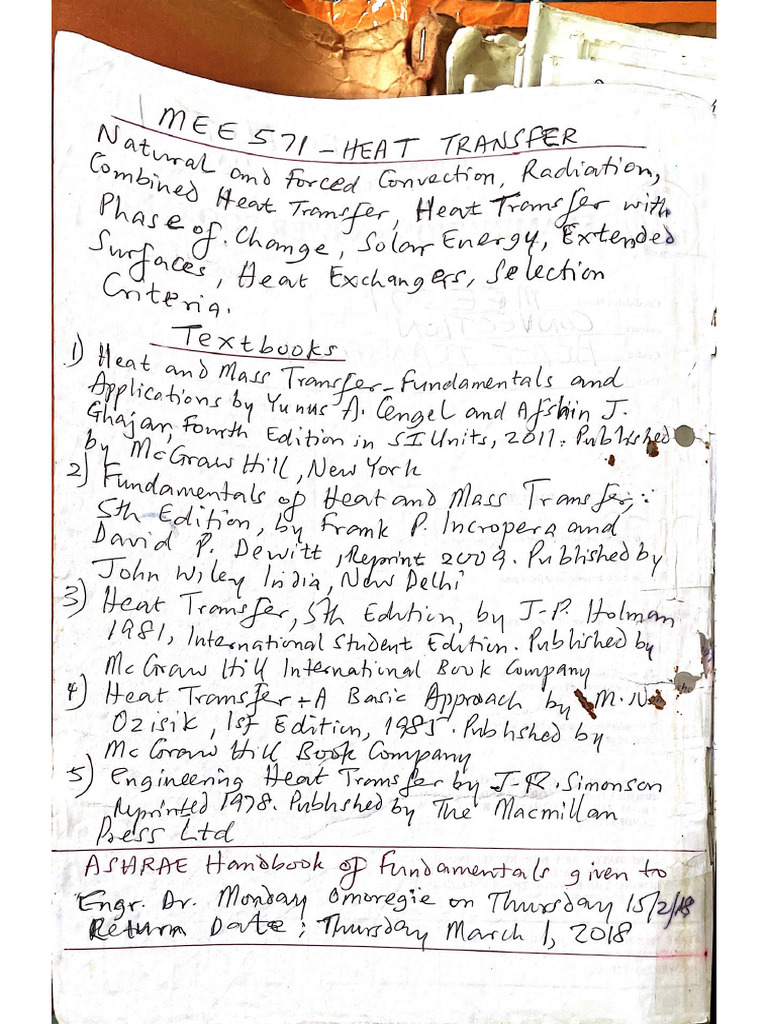 MEE 571 - HEAT TRANSFER
Natural and Forced Convection, Radiation,
Combined Heat Transfer, Heat Transfer with
Phase of Change, Solar Energy, Extended
Surfaces, Heat Exchangers, Selection
Criteria.
Textbooks
1) Heat and Mass Transfer - Fundamentals and
Applications by Yunus A. Cengel and Afshin J.
Ghajar, Fourth Edition in SI Units, 2011. Published
by McGraw Hill, New York
2) Fundamentals of Heat and Mass Transfer,
5th Edition, by Frank P. Incropera and
David P. Dewitt, Reprint 2009. Published by
John Wiley India, New Delhi
3) Heat Transfer, 5th Edition, by J.P. Holman
1981, International Student Edition. Published by
Mc Graw Hill International Book Company
4) Heat Transfer - A Basic Approach by M. N.
Ozisik, 1st Edition, 1985. Published by
Mc Graw Hill Book Company
5) Engineering Heat Transfer by J.R. Simonson
Reprinted 1978. Published by The Macmillan
Press Ltd
ASHRAE Handbook of Fundamentals given to
Engr. Dr. Monday Omoregie on Thursday 15/2/18
Return Date: Thursday March 1, 2018